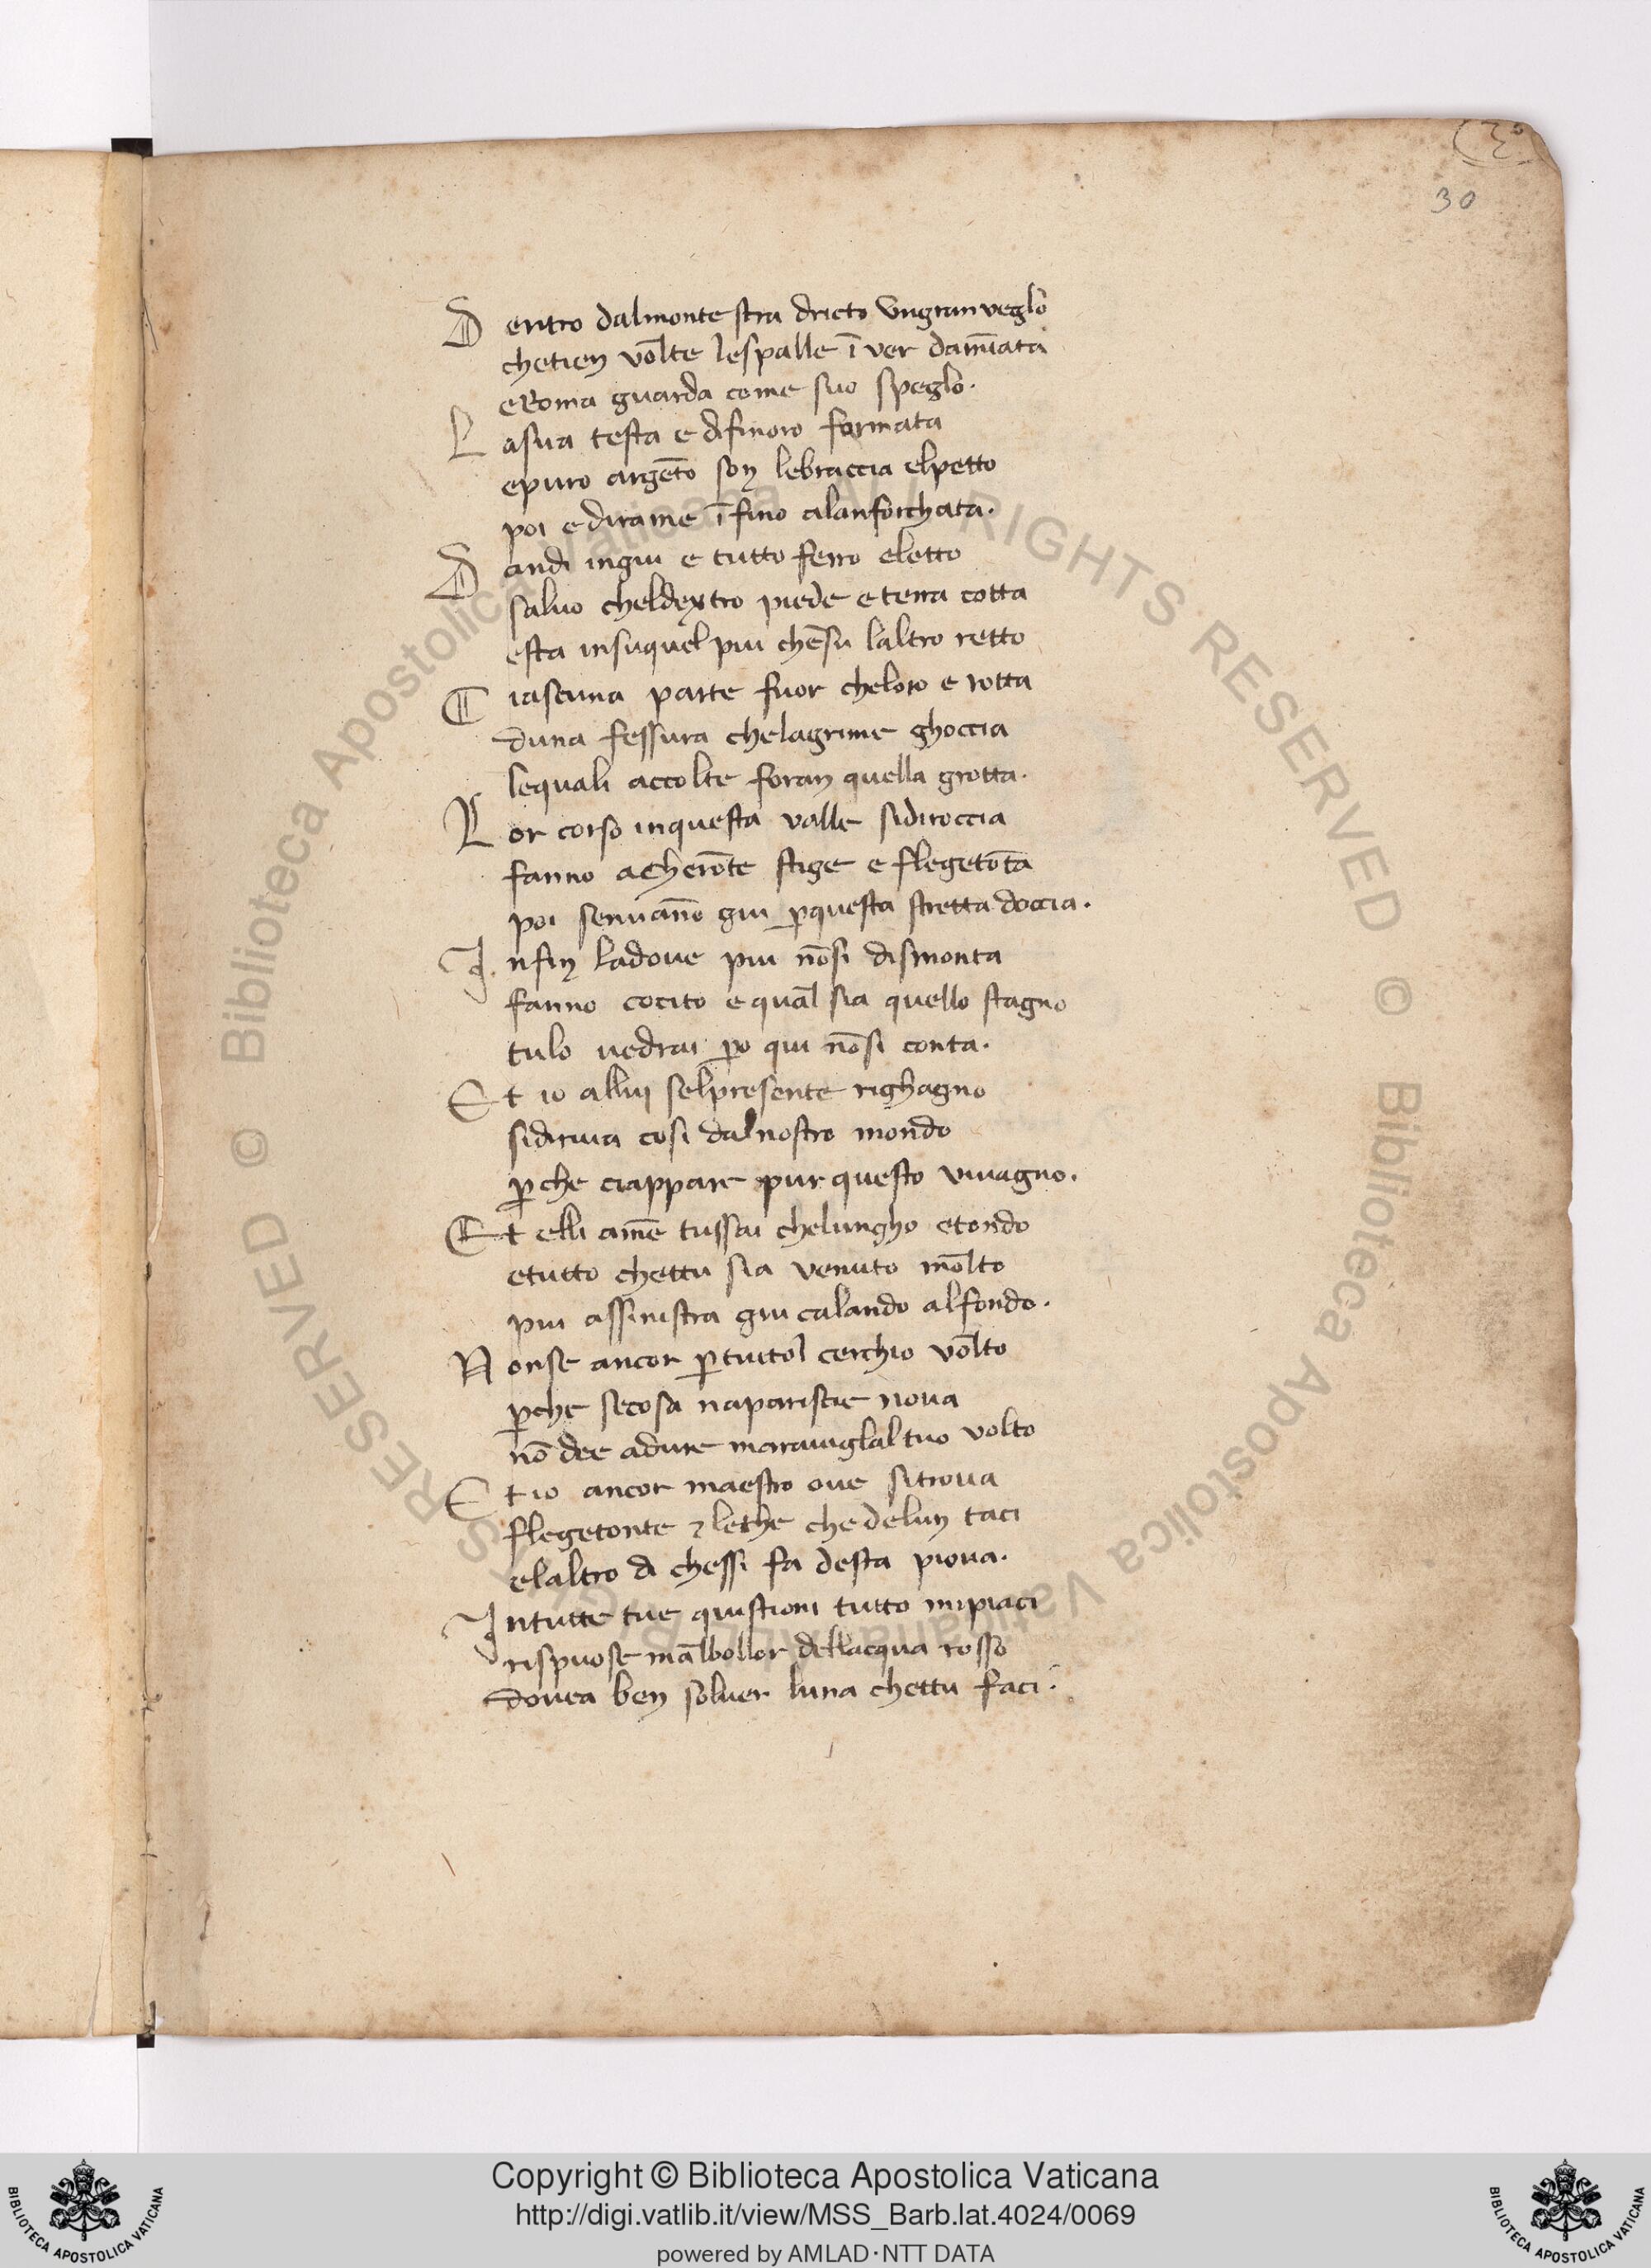 30
Dentro dalmonte stra dricto Vngran veglo
chetien uolte lespalle ī ver damīata
eRoma guarda come suo speglo.
Lasua testa e difinoro formata
epuro argēto son lebraccia elpetto
poi edirame īfino alanforchata.
Dandi ingiu e tutto ferro eletto
saluo cheldextro piede e terra cotta
esta insuquel piu chēsu laltro retto
Ciascuna parte fuor cheloro e rotta
duna fessura chelagrime ghoccia
lequali accolte foran quella grotta.
Lor corso inquesta valle sidiroccia
fanno acherōte stige e flegetōta
poi senuāno giu ꝑquesta stretta doccia.
Infin ladoue piu nōsi dismonta
fanno cocito e qual sia quello stagno
tulo uedrai ꝑo qui nōsi conta.
Et io allui selpresente righagno
sidiriua cosi dalnostro mondo
ꝑche ciappare pur questo viuagno.
Et elli amē tussai chelungho etondo
etutto chettu sia venuto molto
piu assinistra giu calando alfondo.
Nonse ancor ꝑtuttol cerchio volto
ꝑche secosa napariscie noua
nō dee adure marauiglaltuo volto
Et io ancor maestro oue sitroua
flegetonte ⁊ lethe che delun taci
elaltro di chessi fa desta piova.
Intutte tue quistioni tutto mipiaci
rispuose mālbollor dellacqua rosso
douea ben soluer luna chettu faci.
Copyright © Biblioteca Apostolica Vaticana
http://digi.vatlib.it/view/MSS_Barb.lat.4024/0069
powered by AMLAD·NTT DATA
BIBLIOTECA APOSTOLICA VATICANA
BIBLIOTECA APOSTOLICA VATICANA
© Biblioteca Apostolica Vaticana ALL RIGHTS RESERVED © Biblioteca Apostolica Vaticana ALL RIGHTS RESERVED